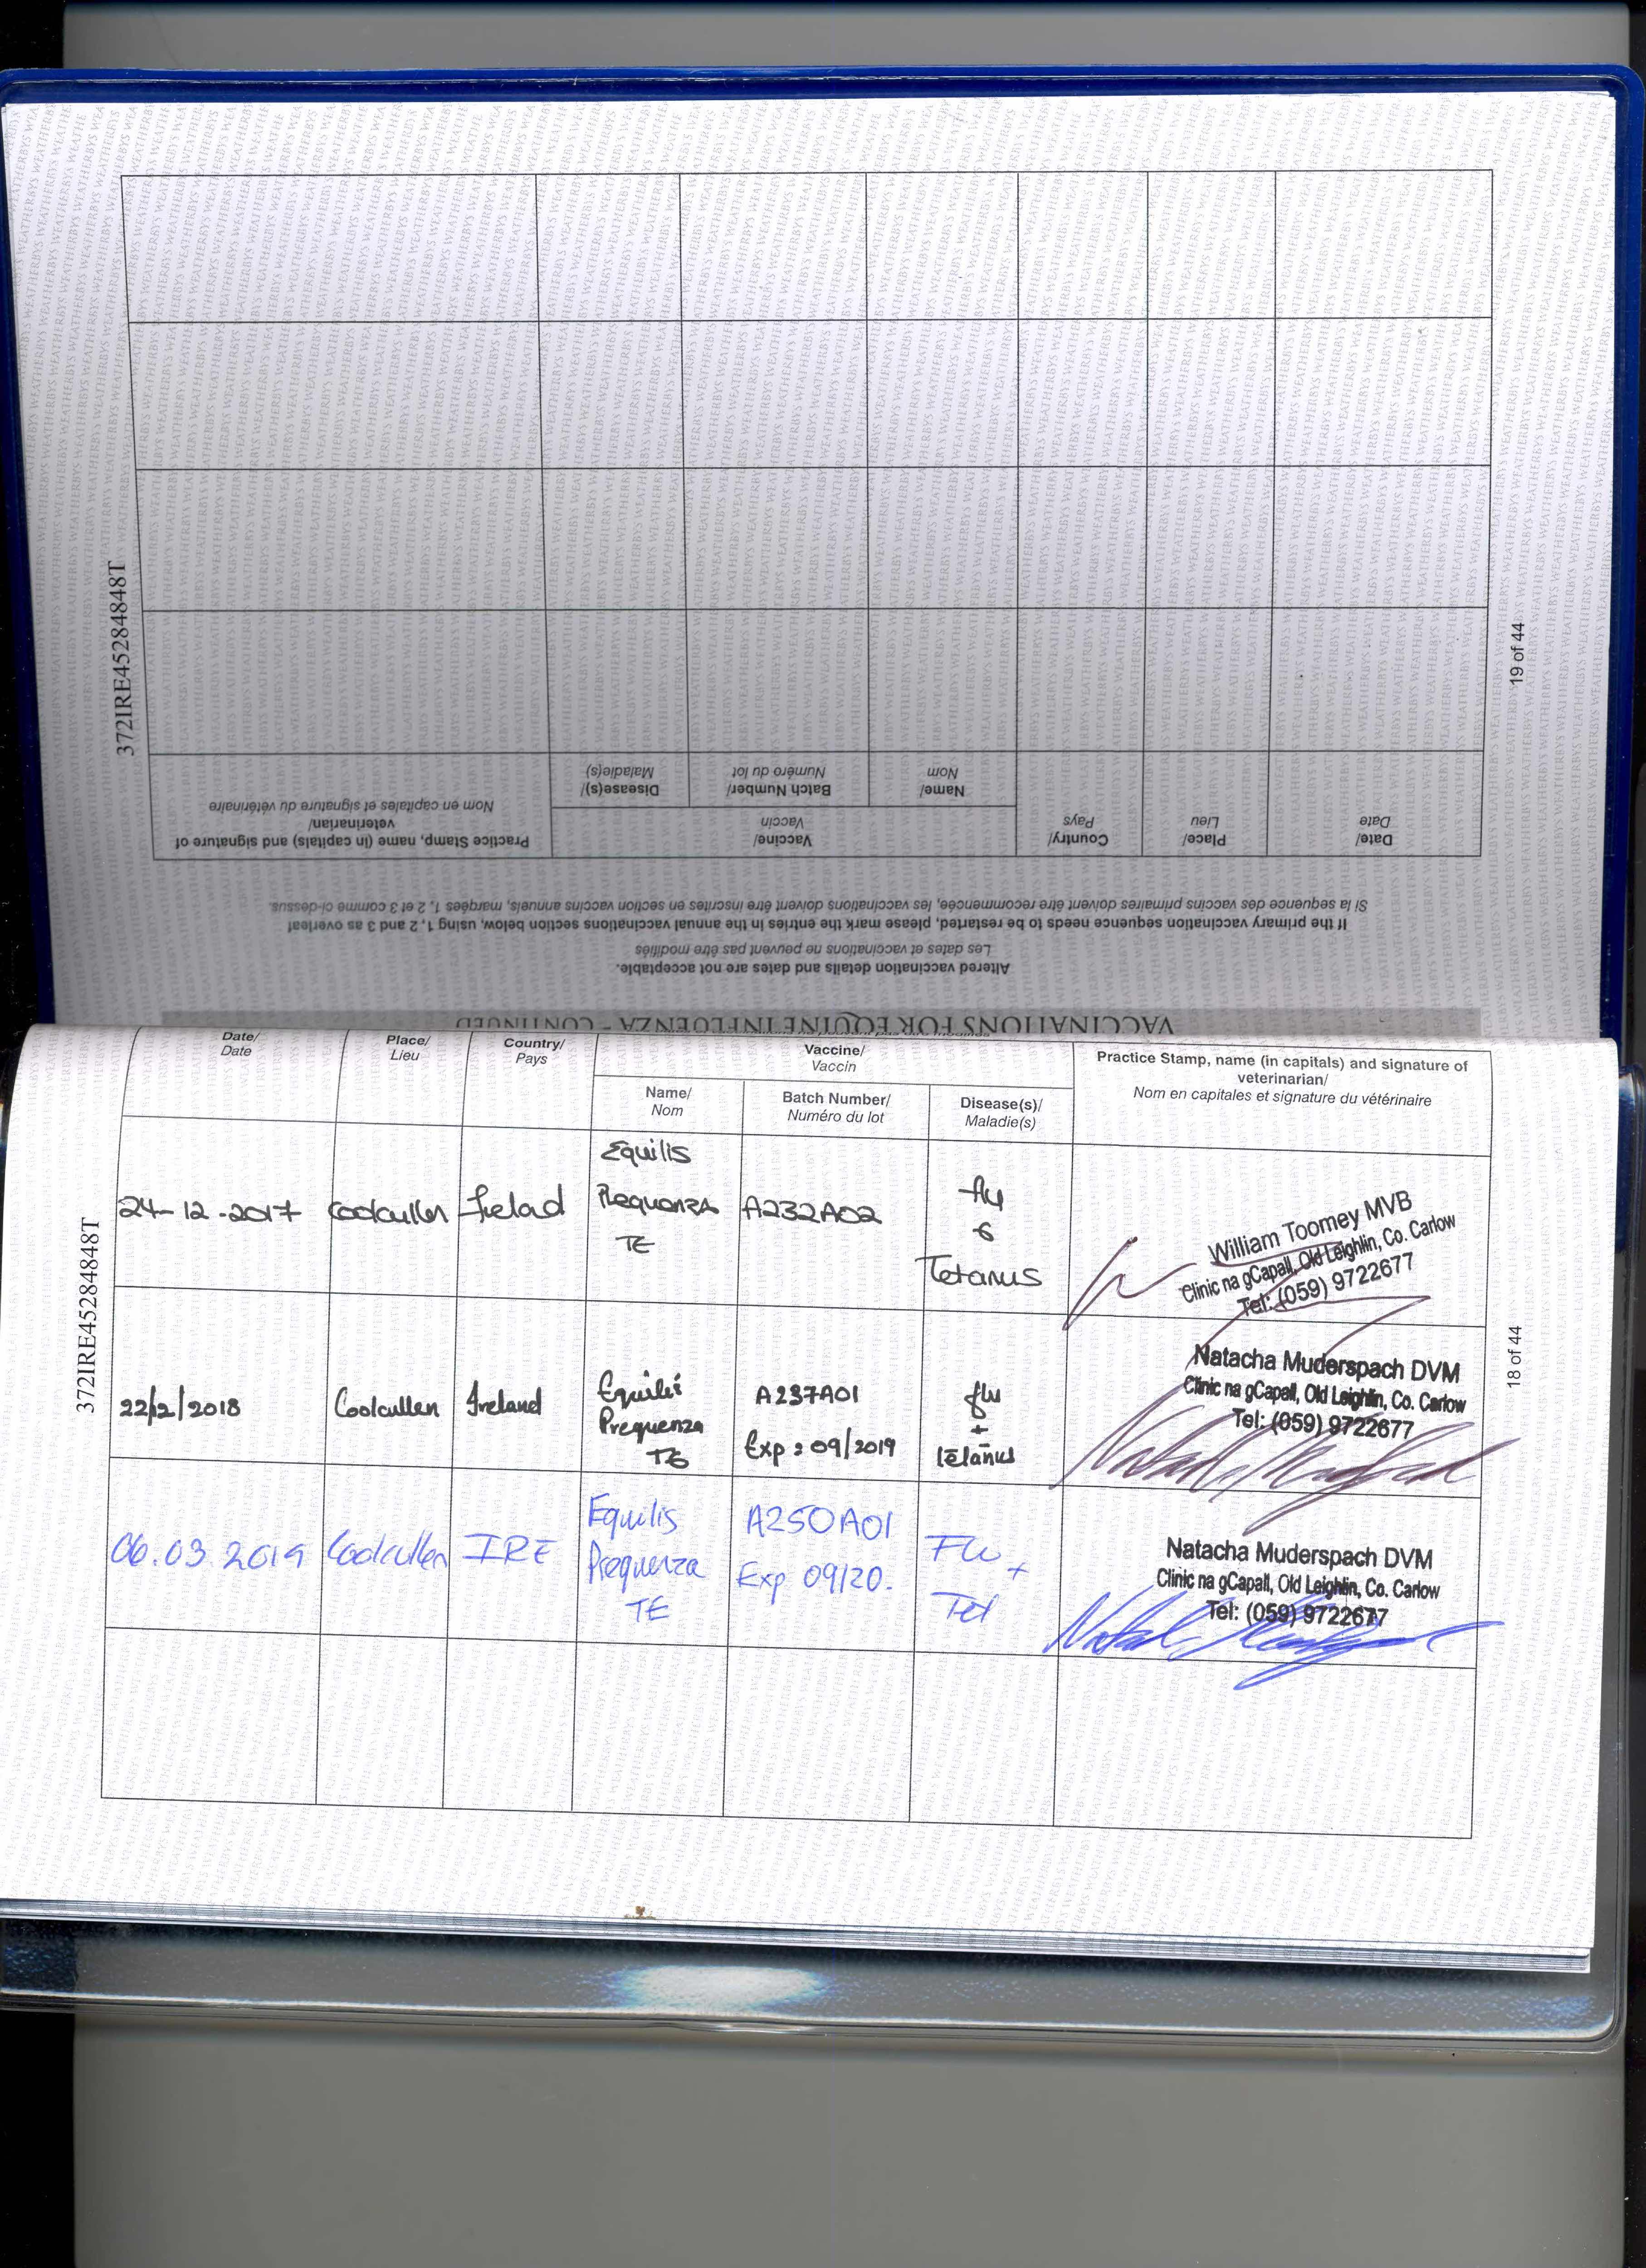 372IRE45284848T
19 of 44
VACCINATIONS FOR EQUINE INFLUENZA - CONTINUED
Altered vaccination details and dates are not acceptable.
Les dates et vaccinations ne peuvent pas être modifiés
If the primary vaccination sequence needs to be restarted, please mark the entries in the annual vaccinations section below, using 1, 2 and 3 as overleaf
Si la sequence des vaccins primaires doivent être recommencée, les vaccinations doivent être inscrites en section vaccins annuels, marquées 1, 2 et 3 comme ci-dessus.
Date/
Date
Place/
Lieu
Country/
Pays
Vaccine/
Vaccin
Name/
Nom
Batch Number/
Numéro du lot
Disease(s)/
Maladie(s)
Practice Stamp, name (in capitals) and signature of
veterinarian/
Nom en capitales et signature du vétérinaire
372IRE45284848T
18 of 44
Date/
Date
Place/
Lieu
Country/
Pays
Vaccine/
Vaccin
Name/
Nom
Batch Number/
Numéro du lot
Disease(s)/
Maladie(s)
Practice Stamp, name (in capitals) and signature of
veterinarian/
Nom en capitales et signature du vétérinaire
24-12-2017
Coolcullen
Irelad
Equilis
Prequenza
TE
A232A02
flu
&
Tetanus
William Toomey MVB
Clinic na gCapall, Old Leighlin, Co. Carlow
Tel: (059) 9722677
22/12/2018
Coolcullen
Ireland
Equilis
Prequenza
TE
A237A01
Exp : 09/2019
flu
+
tetanus
Natacha Muderspach DVM
Clinic na gCapall, Old Leighlin, Co. Carlow
Tel: (059) 9722677
06.03.2019
Coolcullen
IRE
Equilis
Prequenza
TE
A250A01
Exp 09/20.
Flu +
Tet
Natacha Muderspach DVM
Clinic na gCapall, Old Leighlin, Co. Carlow
Tel: (059) 9722677